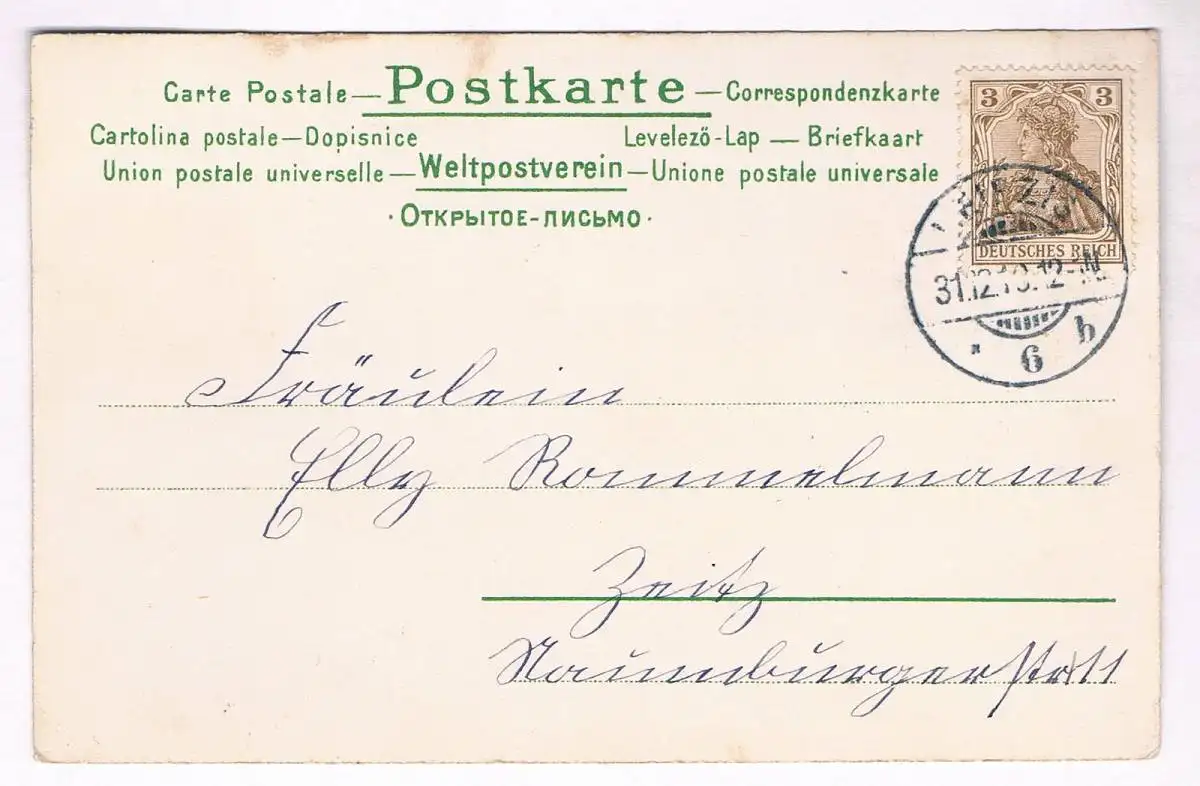 Carte Postale — Postkarte — Correspondenzkarte
Cartolina postale — Dopisnice Levelező-Lap — Briefkaart
Union postale universelle — Weltpostverein — Unione postale universale
· ОТКРЫТОЕ-ПИСЬМО ·
3 3
DEUTSCHES REICH
LEIPZIG
31.12.10.12-1N
* 6 b
Fräulein
Elly Rommelmann
Zeitz
Naumburger str 11